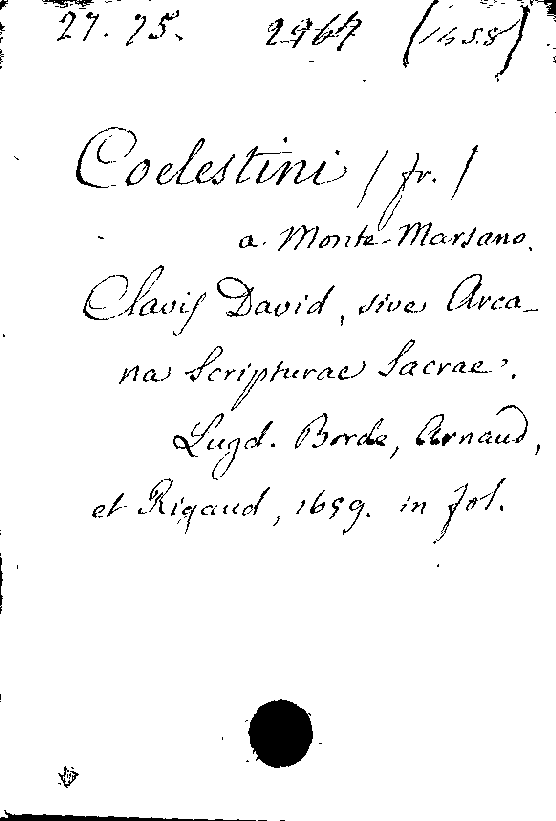 27. 75. 2967 (1458)
Coelestini / fr. /
a Monte-Marsano.
Clavis David, sive Arca-
na Scripturae Sacrae.
Lugd. Borde, Arnaud,
et Rigaud, 1659. in fol.